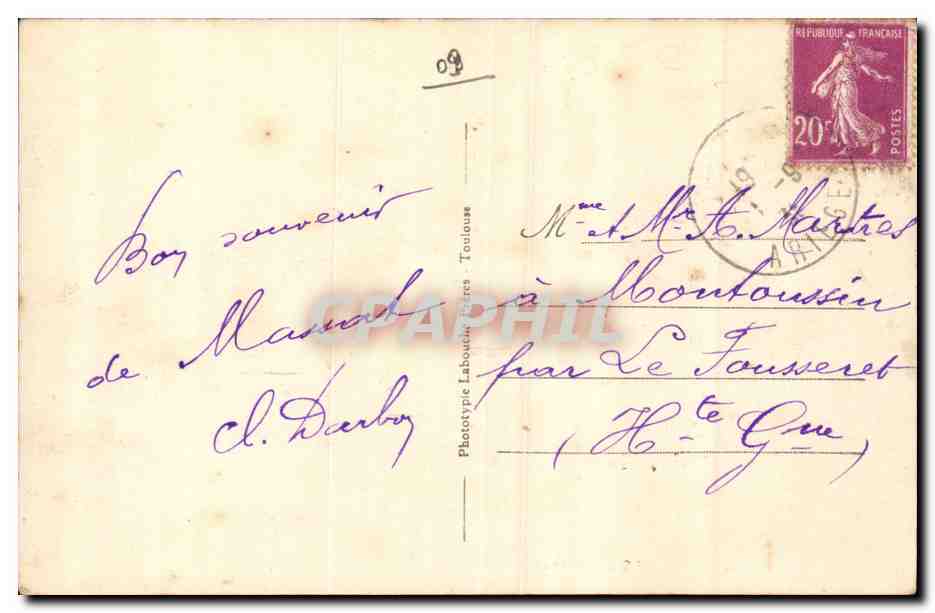 09
RÉPUBLIQUE FRANÇAISE
20c
POSTES
ARIEGE
Bon souvenir
de Massat
Cl. Darboy
Phototypie Labouche Frères - Toulouse
CPAPHIL
Mme et Mr A. Martres
à Montoussin
par Le Fousseret
(Hte Gne)